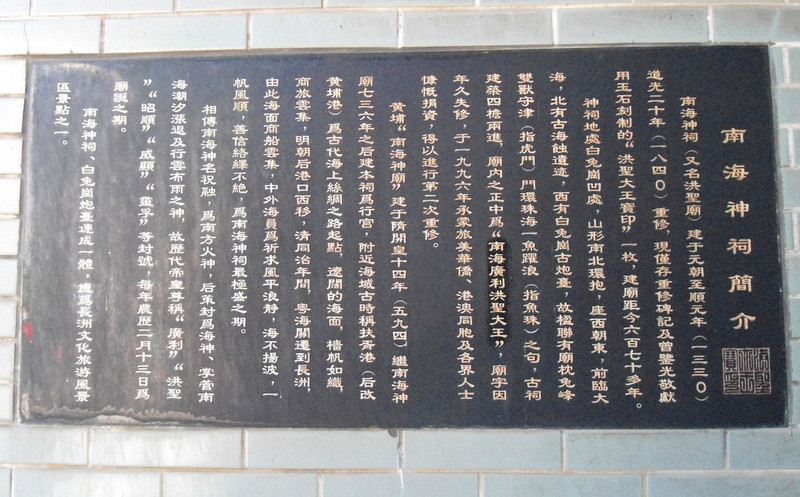 南海神祠簡介
南海神祠（又名洪聖廟）建于元朝至順元年（一三三０）
道光二十年（一八四０）重修，現僅存重修碑記及曾鑒光敬獻
用玉石刻制的“洪聖大王寶印”一枚，建廟距今六百七十多年。
神祠地處白兔崗凹處，山形南北環抱，座西朝東，前臨大
海，北有古海蝕遺迹，西有白兔崗古炮臺，故楹聯有廟枕兔峰
雙獸守津（指虎門）門環珠海一魚躍浪（指魚珠）之句，古祠
建築四檐兩進，廟内之正中爲“南海廣利洪聖大王”，廟宇因
年久失修，于一九九六年承蒙旅美華僑、港澳同胞及各界人士
慷慨捐資，得以進行第二次重修。
黄埔“南海神廟”建于隋開皇十四年（五九四）繼南海神
廟七三六年之后建本祠爲行宮，附近海域古時稱扶胥港（后改
黄埔港）爲古代海上絲綢之路起點，遼闊的海面，檣帆如織，
商旅雲集，明朝后港口西移，清同治年間，粤海關遷到長洲，
由此海面商船雲集，中外海員爲祈求風平浪静，海不揚波，一
帆風順，善信絡繹不絶，爲南海神祠最極盛之期。
相傳南海神名祝融，爲南方火神，后策封爲海神、掌管南
海潮汐漲退及行雲布雨之神，故歷代帝皇尊稱“廣利”“洪聖
”“昭順”“威顯”“靈孚”等封號，每年農歷二月十三日爲
廟誕之期。
南海神祠、白兔崗炮臺連成一體，應爲長洲文化旅游風景
區景點之一。